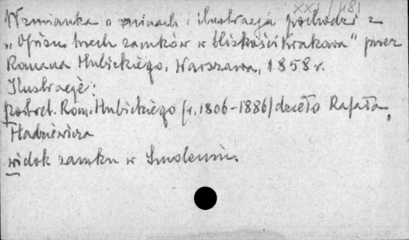 XX /481
Wzmianka o ruinach i ilustracja pochodzi z
"Opisu trzech zamków w bliskości Krakowa" przez
Romana Hubickiego, Warszawa, 1858 r.
Ilustracje:
portret Rom. Hubickiego (r. 1806-1886) dzieło Rafała
Hadziewicza
widok zamku w Smoleniu.